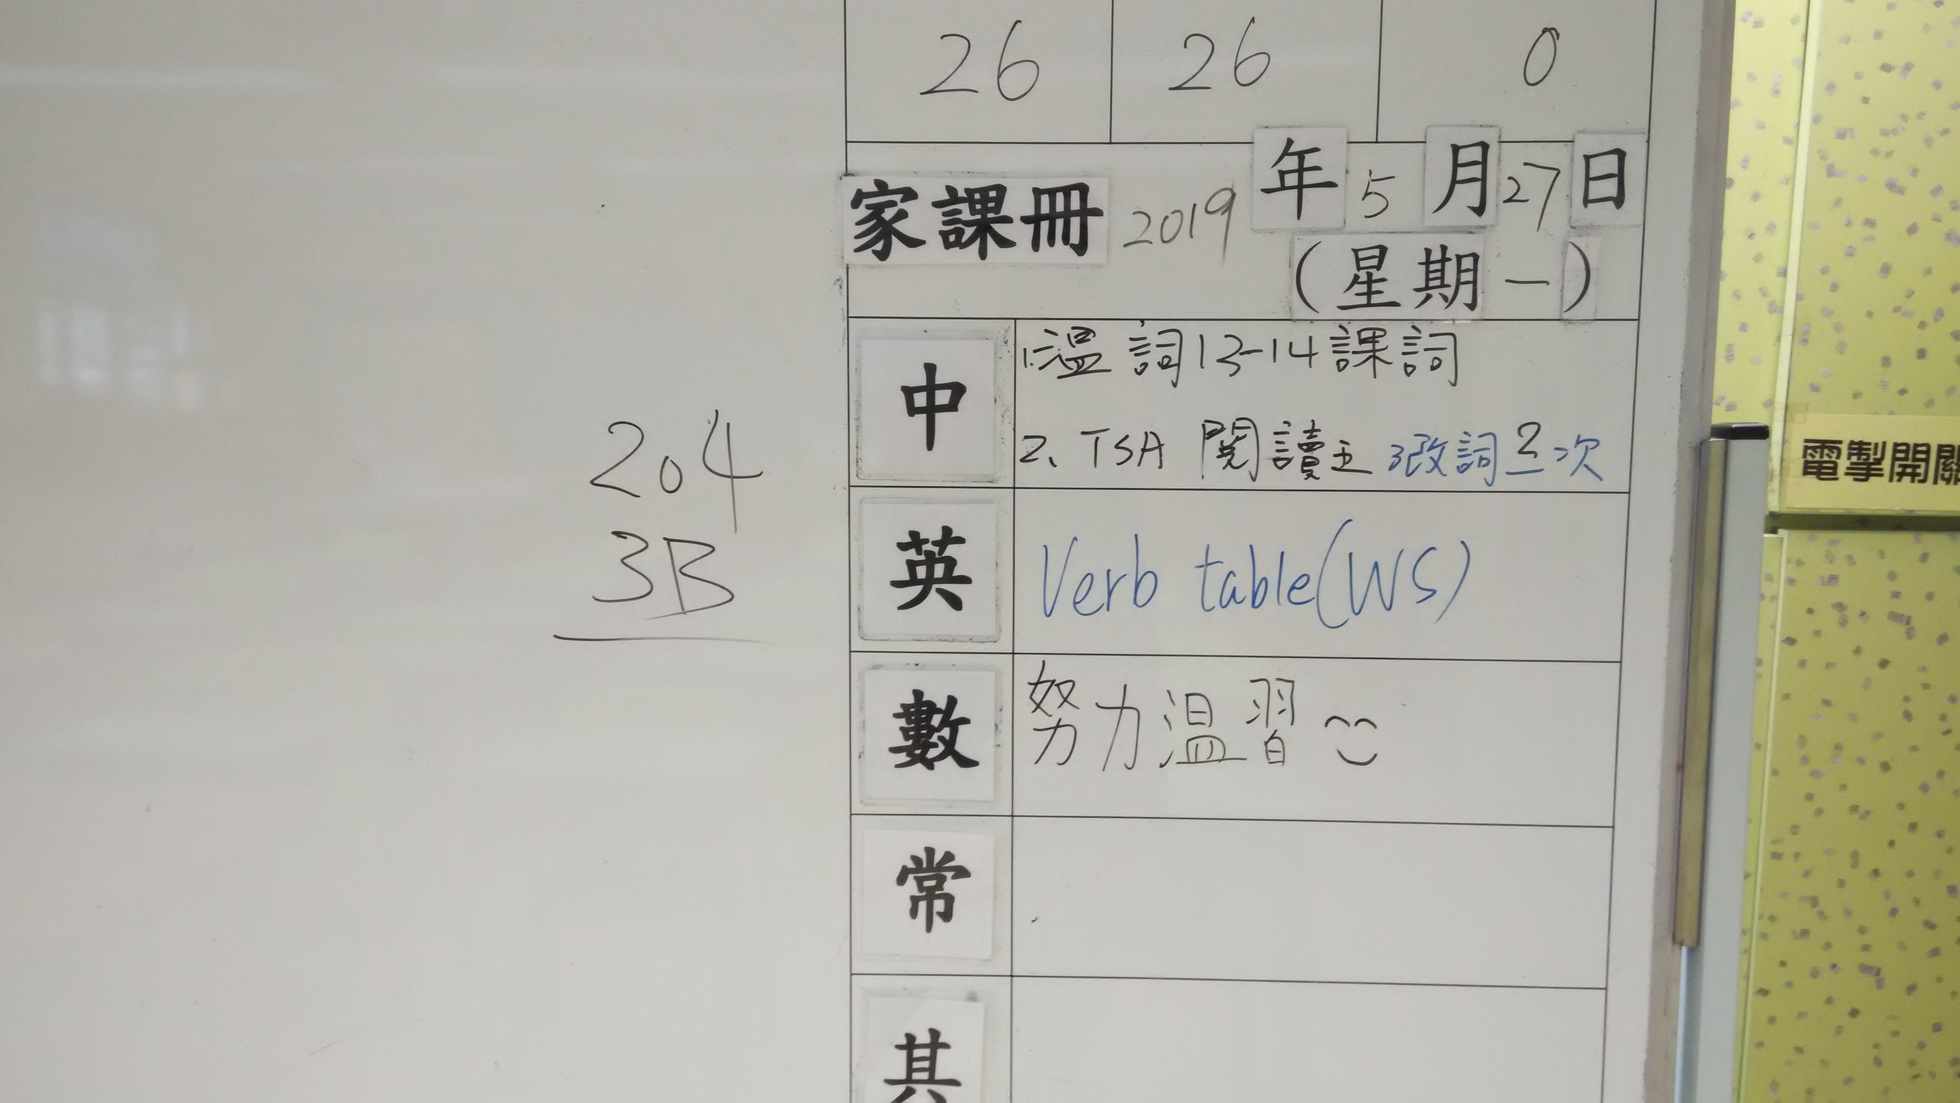 26 26 0
家課冊 2019 年 5 月 27 日
(星期一)
204
3B
中
1.溫詞13-14課詞
2、TSA 閱讀五 3改詞2次
英 Verb table(WS)
數 努力溫習
常
其
電掣開關